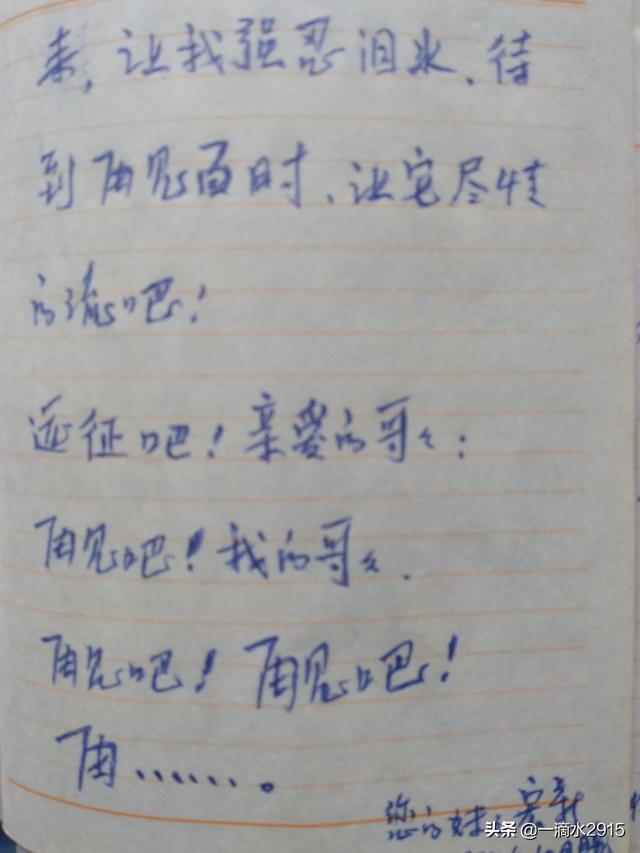 来，让我强忍泪水、待
到再见面时、让它尽情
的流吧！
远征吧！亲爱的哥々：
再见吧！我的哥々.
再见吧！再见吧！
再……。
您的妹：
头条 @一滴水2915